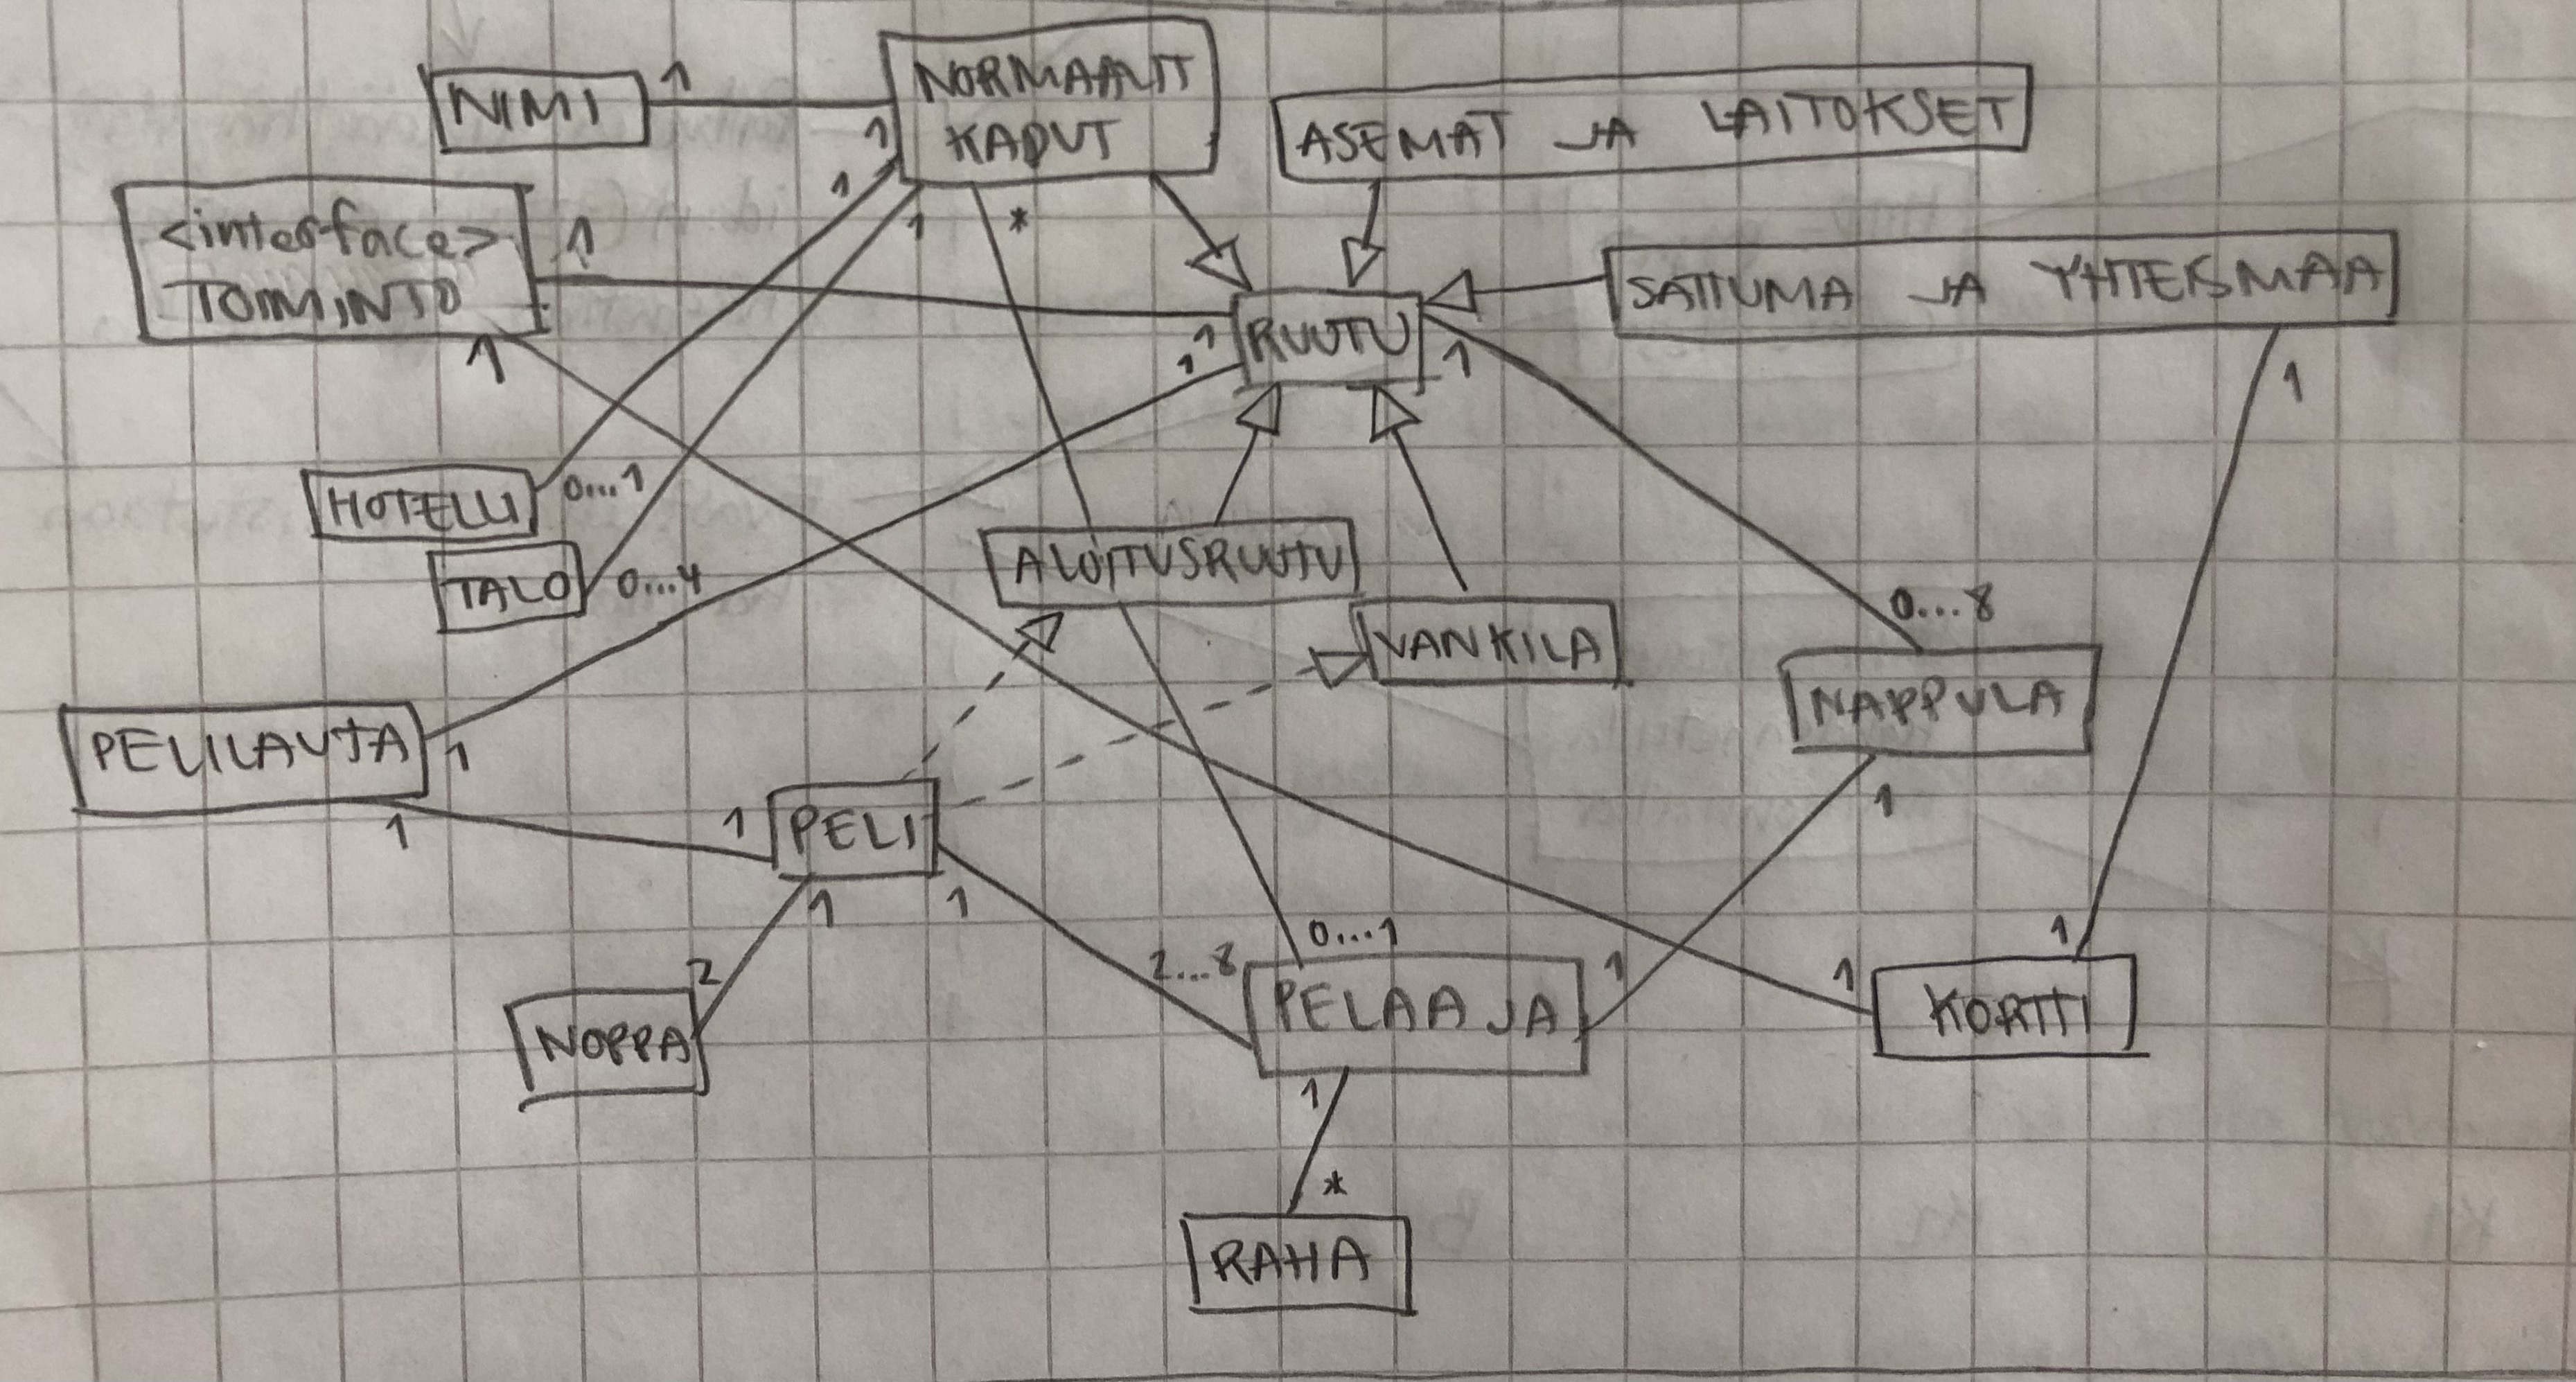 NIMI
1
NORMAALIT
KADUT
1
ASEMAT JA LAITOKSET
<interface>
TOIMINTO
1
1
1
1
*
SATTUMA JA YHTEISMAA
1
RUUTU
1
1
1
1
HOTELLI
0...1
TALO
0...4
ALOITUSRUUTU
VANKILA
0...8
NAPPULA
1
PELILAUTA
1
1
1
PELI
1
1
2
NOPPA
2...8
0...1
PELAAJA
1
1
1
1
KORTTI
*
RAHA